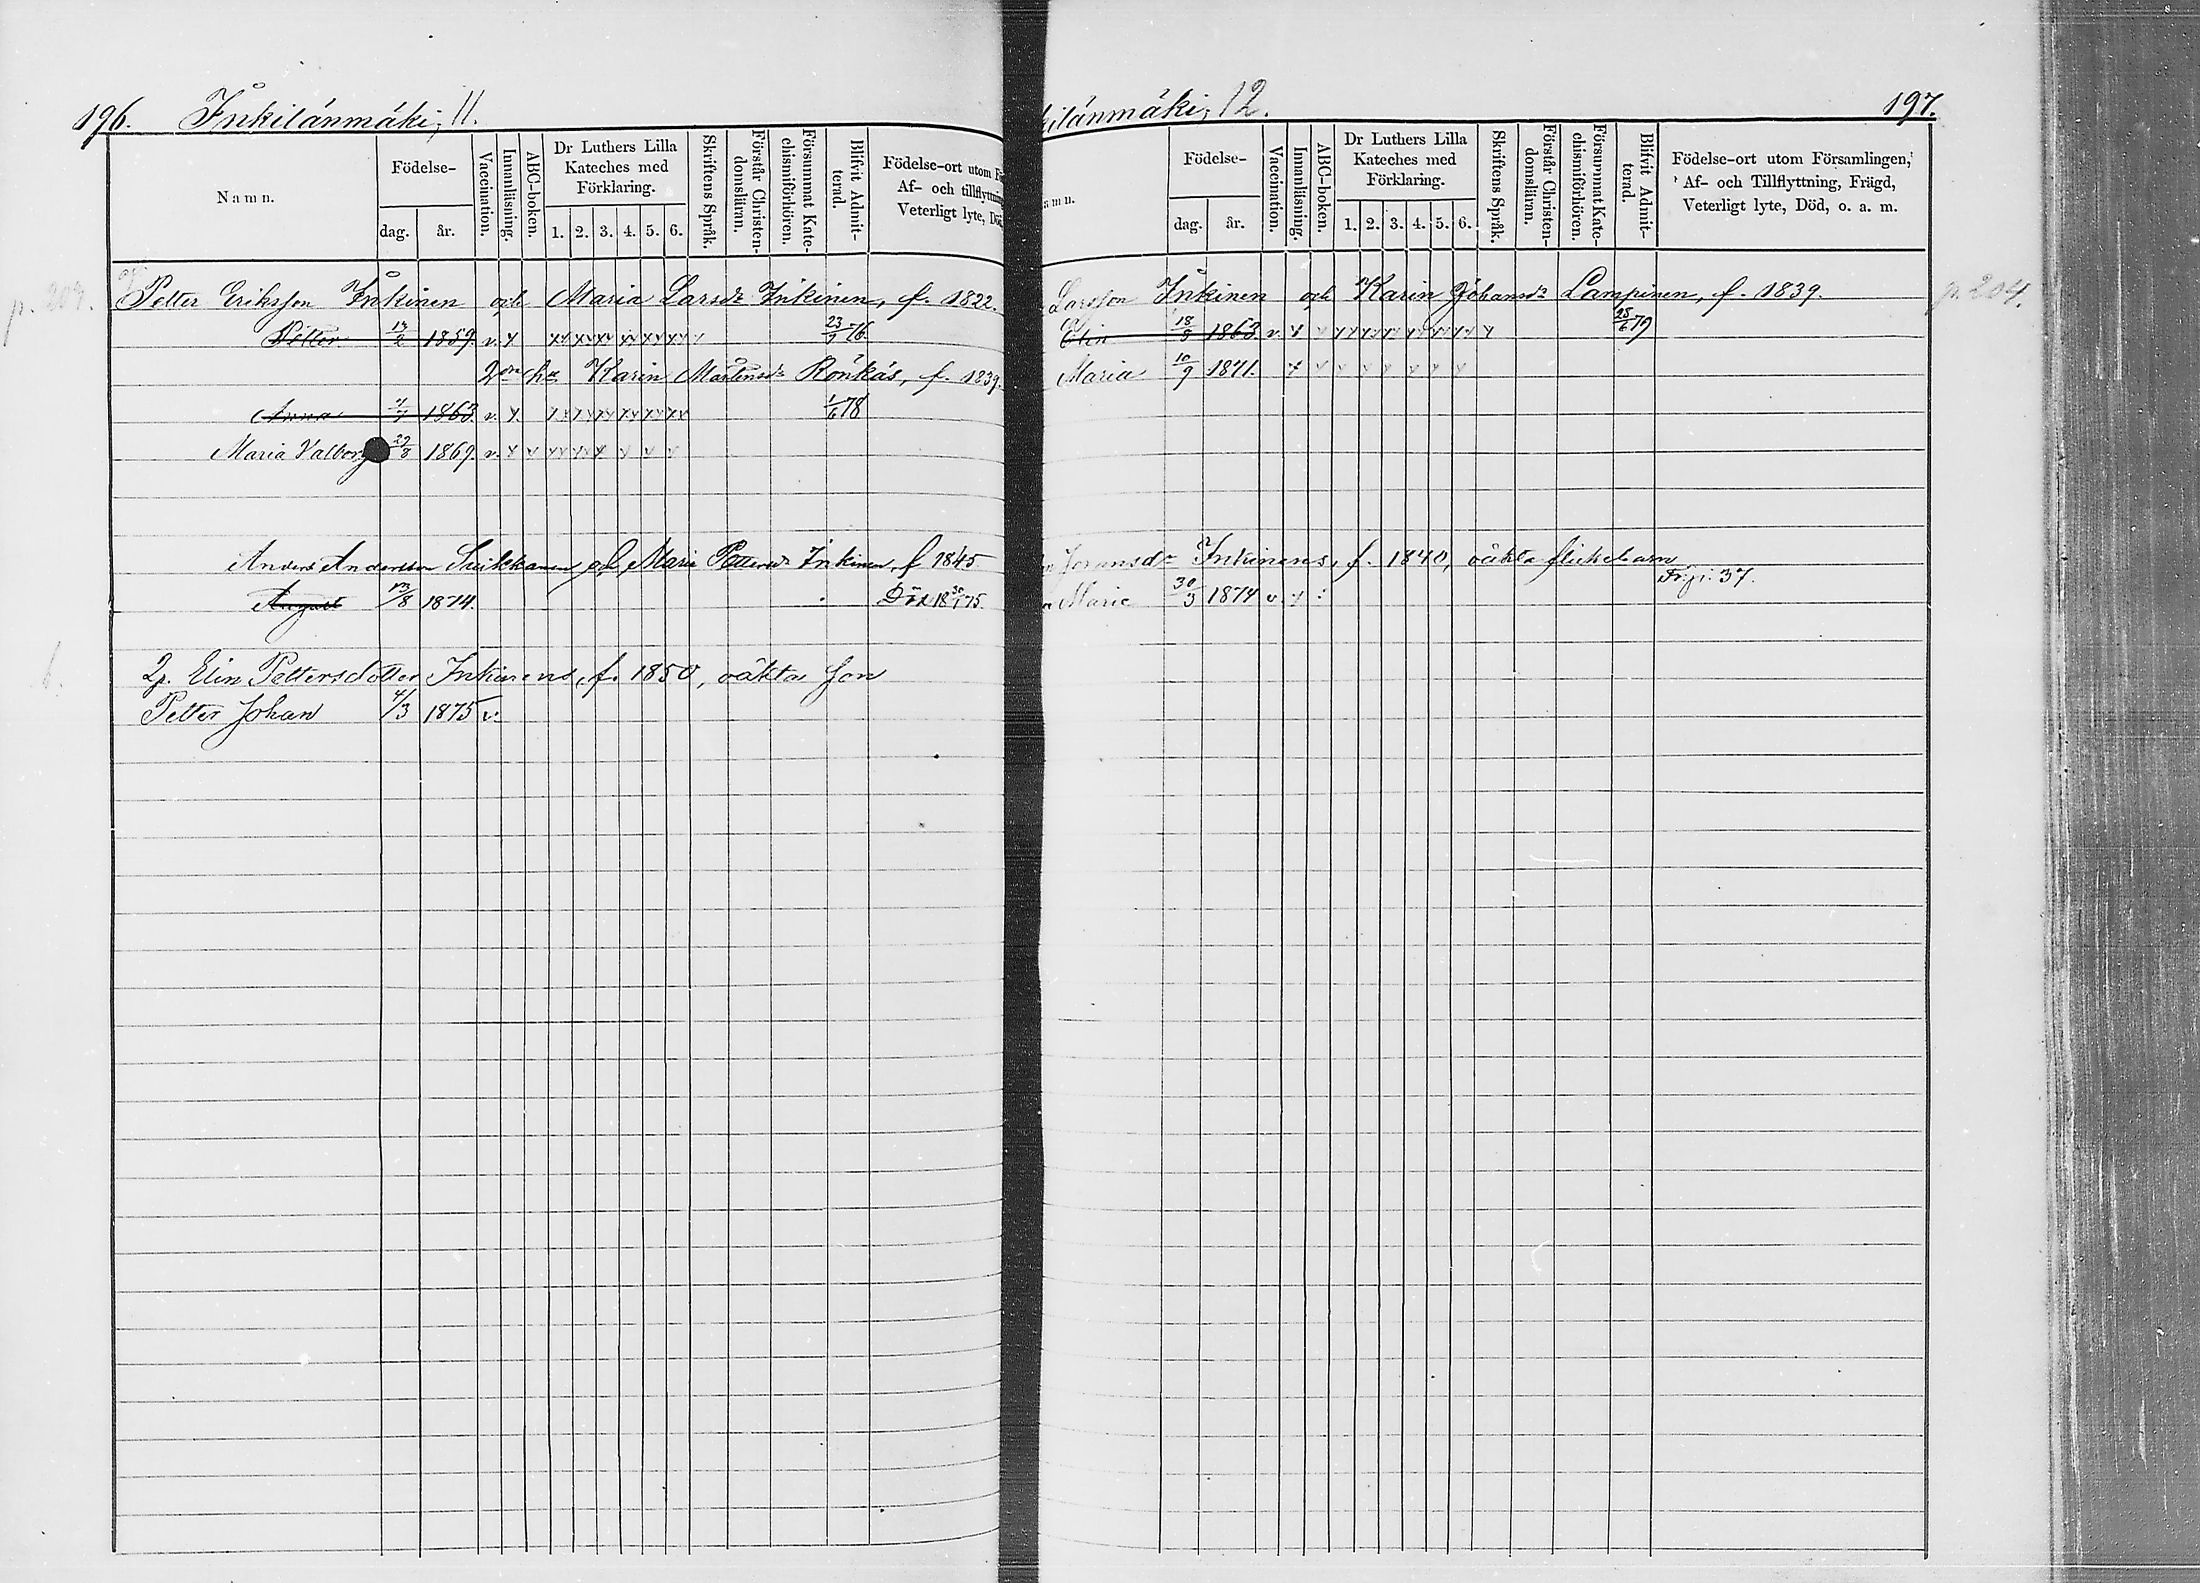 196. Inkilänmäki, 11.
Namn.
Födelse-
dag. år.
Vaccination.
Innanläsning.
ABC-boken.
Dr Luthers Lilla
Kateches med
Förklaring.
1. 2. 3. 4. 5. 6.
Skriftens Språk.
Förstår Christen-
domsläran.
Försummat Kate-
chismiförhören.
Blifvit Admit-
terad.
Födelse-ort utom
Af- och tillflyttning
Veterligt lyte, Död
p. 207.
Petter Eriksson Inkinen och Maria Larsdr Inkinen, f. 1822.
Petter 17/2 1859. v. x 23/7 76.
2dra h:u Karin Mårtensdr Rönkäs, f. 1839.
Anna 7/7 1863. v. x. 1/6 78
Maria Valborg 29/8 1869. v. x x
Anders Andersson Suikkanen och Maria Pettersdr Inkinen, f 1845
August 13/8 1874. Död 18 30/1 75.
2p. Elin Pettersdotter Inkinens, f. 1850, oäkta son
Petter Johan 4/3 1875 v.
kilänmäki, 12. 197.
amn.
Födelse-
dag. år.
Vaccination.
Innanläsning.
ABC-boken.
Dr Luthers Lilla
Kateches med
Förklaring.
1. 2. 3. 4. 5. 6.
Skriftens Språk.
Förstår Christen-
domsläran.
Försummat Kate-
chismiförhören.
Blifvit Admit-
terad.
Födelse-ort utom Församlingen,
Af- och Tillflyttning, Frägd,
Veterligt lyte, Död, o. a. m.
Larsson Inkinen och Karin Johansdr Lampinen, f. 1839. p. 204.
Elin 18/8 1863. v. x 28/6 79
Maria 10/9 1871. x
Inkinens, f. 1840, oäkta flickebarn
Maria 30/3 1874 v. y Fr. p. 37.